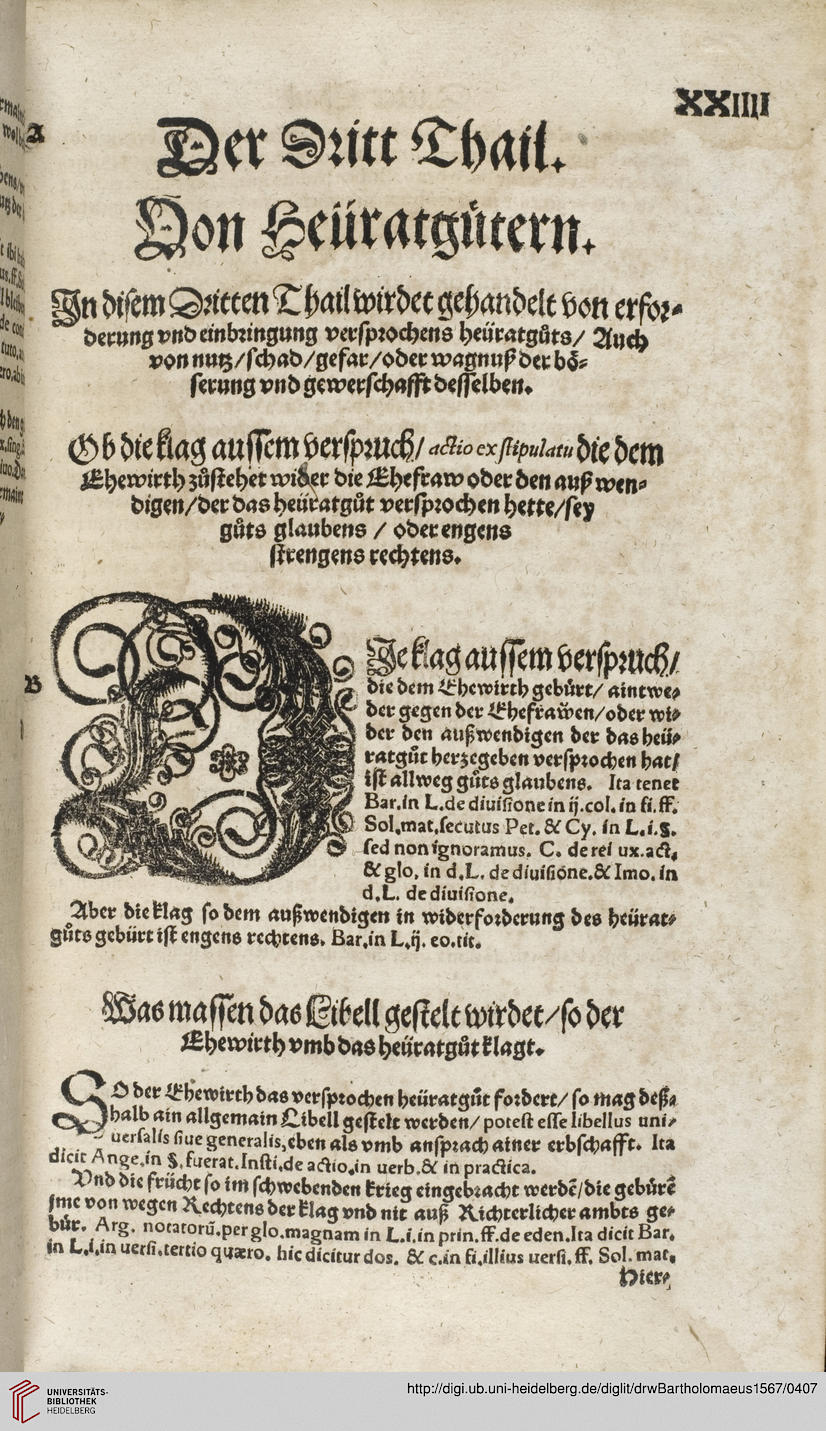 XXIIII
A
Der Dritt Thail.
Von Heüratgůtern.
In disem Dritten Thail wirdet gehandelt von erfor-
derung vnd einbringung versprochens heüratgůts/ Auch
von nutz/schad/gefar/oder wagnuß der bö-
serung vnd gewerschafft desselben.
Ob die klag aussem verspruch/ actio ex stipulatu die dem
Ehewirth zůstehet wider die Ehefraw oder den auß wen-
digen/der das heüratgůt versprochen hette/sey
gůts glaubens / oder engens
strengens rechtens.
B
DIe klag aussem verspruch/
die dem Ehewirth gebürt/ aintwe-
der gegen der Ehefrawen/oder wi-
der den außwendigen der das heü-
ratgůt herzegeben versprochen hat/
ist allweg gůts glaubens. Ita tenet
Bar.in L.de diuisione in ij.col.in fi.ff.
Sol.mat.secutus Pet. & Cy. in L.i.§.
sed non ignoramus. C. de rei ux.act.
& glo, in d.L. de diuisione.& Imo. in
d.L. de diuisione.
Aber die klag so dem außwendigen in widerforderung des heürat-
gůts gebürt ist engens rechtens. Bar.in L.ij. eo.tit.
Was massen das Libell gestelt wirdet/so der
Ehewirth vmb das heüratgůt klagt.
SO der Ehewirth das versprochen heüratgůt fordert/ so mag deß-
halb ain allgemain Libell gestelt werden/ potest esse libellus uni-
uersalis siue generalis,eben als vmb ansprach ainer erbschafft. Ita
dicit Ange.in §.fuerat.Insti.de actio.in uerb.& in practica.
Vnd die frücht so im schwebenden krieg eingebracht werdē/die gebürē
jme von wegen Rechtens der klag vnd nit auß Richterlicher ambts ge-
bür. Arg. notatorū.per glo.magnam in L.i.in prin.ff.de eden.Ita dicit Bar.
in L.i.in uersi.tertio quæro. hic dicitur dos. & c.in fi.illius uersi.ff. Sol. mat.
Hier-
UNIVERSITÄTS-
BIBLIOTHEK
HEIDELBERG
http://digi.ub.uni-heidelberg.de/diglit/drwBartholomaeus1567/0407